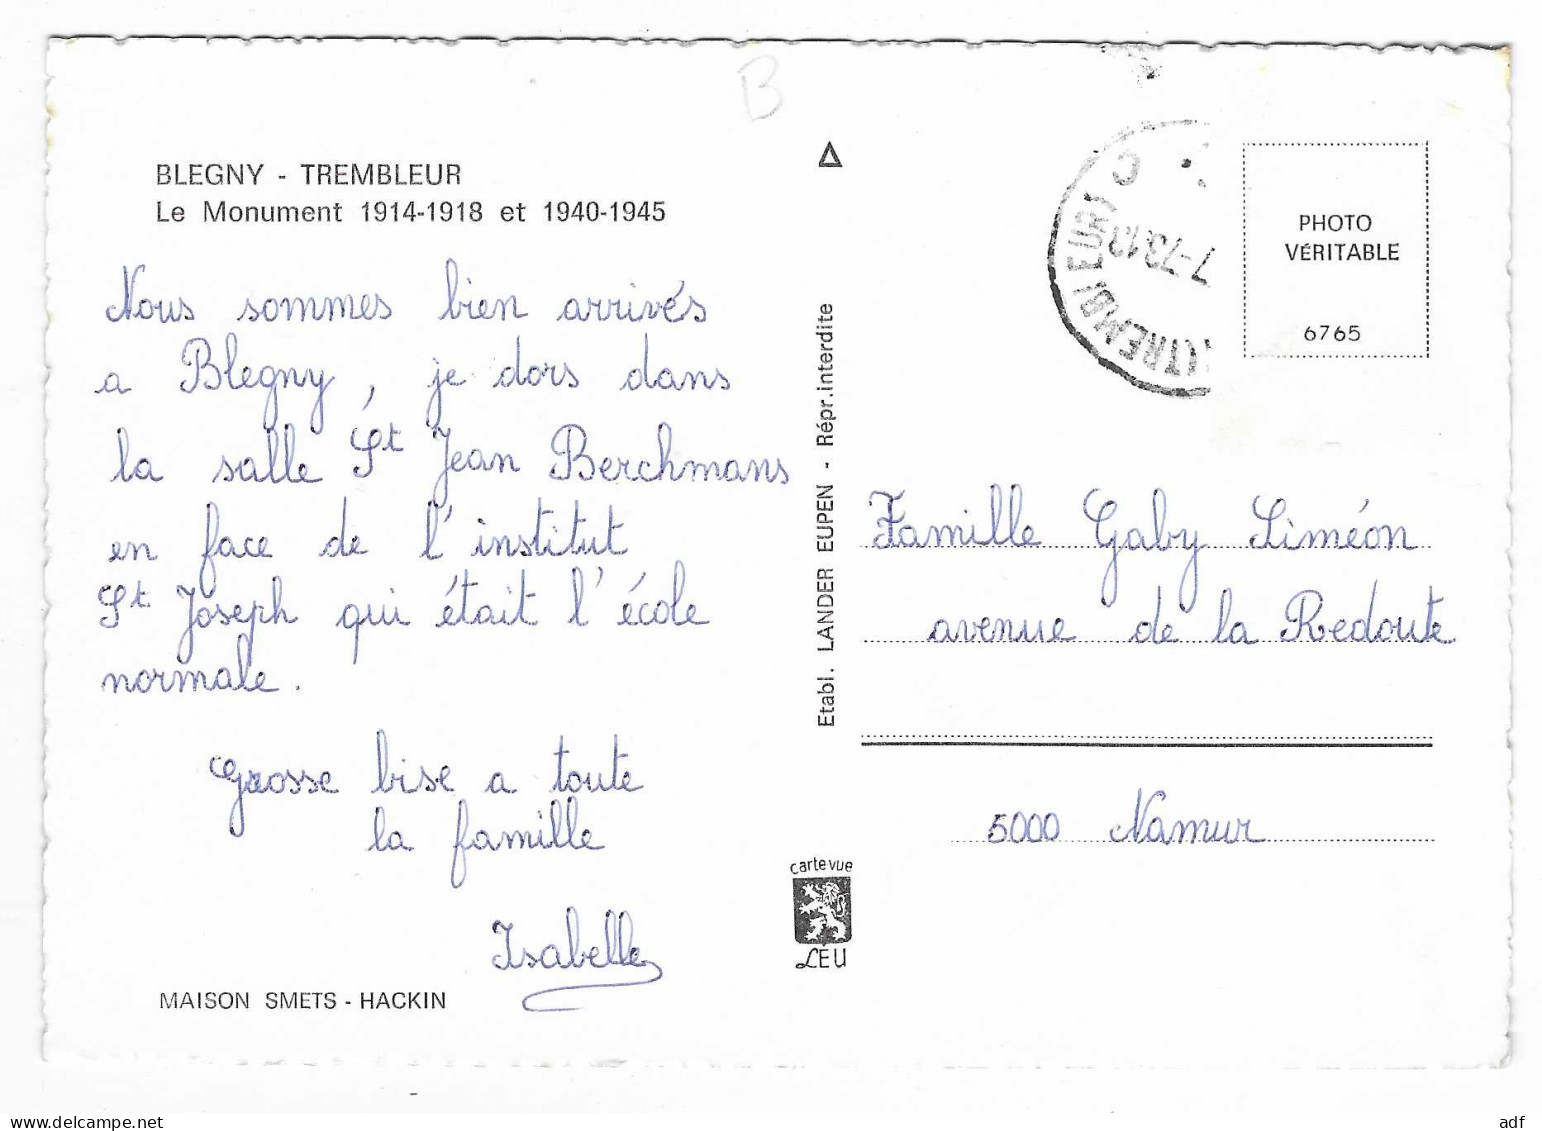 B
BLEGNY - TREMBLEUR
Le Monument 1914-1918 et 1940-1945
Nous sommes bien arrivés
a Blegny, je dors dans
la salle St Jean Berchmans
en face de l'institut
St Joseph qui était l'école
normale.
Grosse bise a toute
la famille
Isabelle
MAISON SMETS - HACKIN
Etabl. LANDER EUPEN - Répr. interdite
carte vue
LEU
(TREMBLEUR) C
PHOTO
VÉRITABLE
6765
Famille Gaby Siméon
avenue de la Redoute
5000 Namur
adf
www.delcampe.net